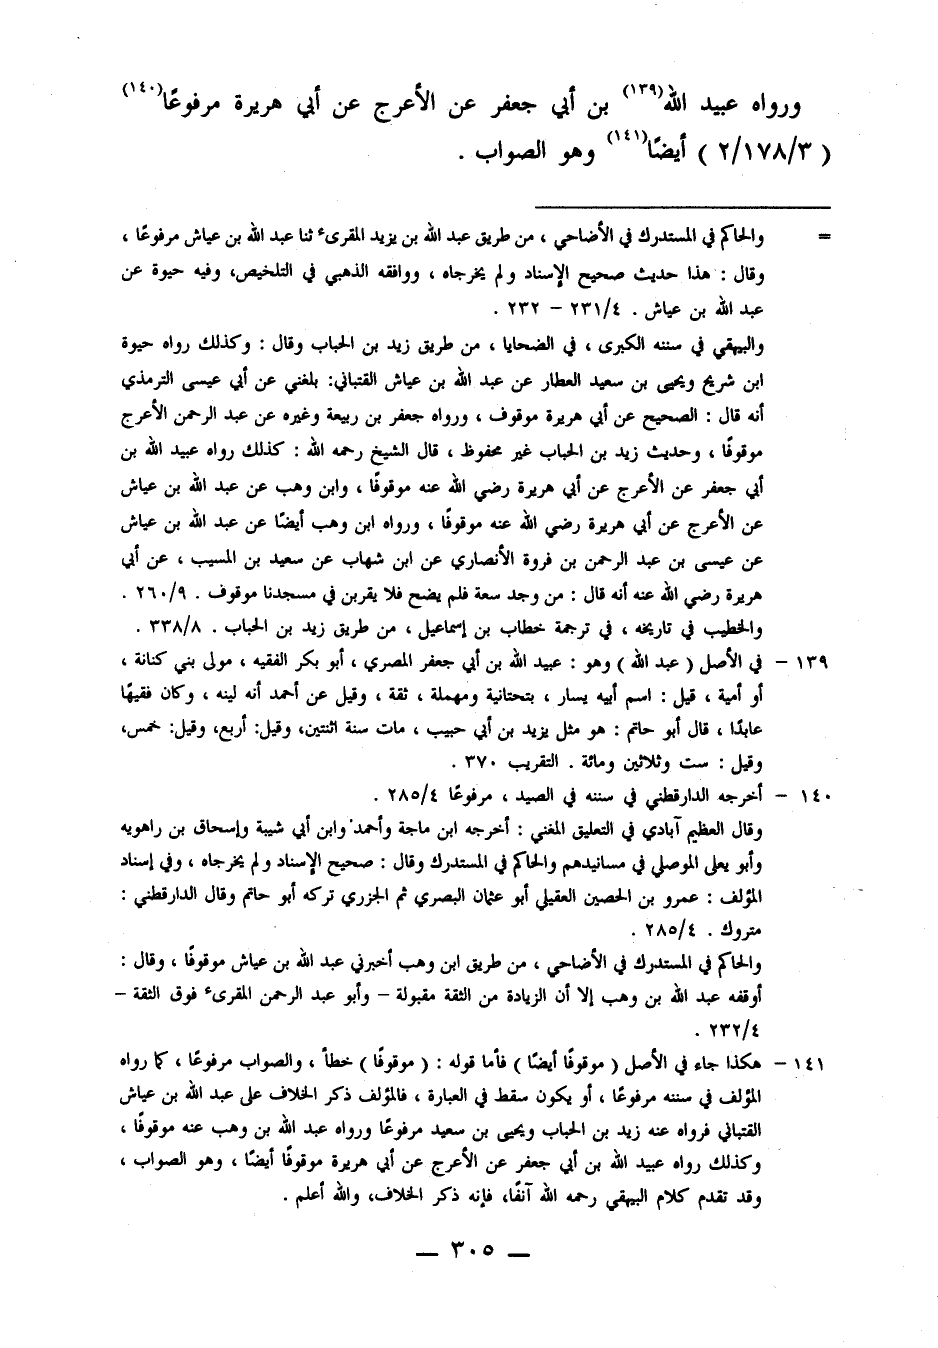 ورواه عبيد الله(١٣٩) بن أبي جعفر عن الأعرج عن أبي هريرة مرفوعًا(١٤٠)
( ٢/١٧٨/٣ ) أيضًا(١٤١) وهو الصواب .
= والحاكم في المستدرك في الأضاحي ، من طريق عبد الله بن يزيد المقرىء ثنا عبد الله بن عياش مرفوعًا ،
وقال : هذا حديث صحيح الإسناد ولم يخرجاه ، ووافقه الذهبي في التلخيص، وفيه حيوة عن
عبد الله بن عياش . ٢٣١/٤ – ٢٣٢ .
والبيهقي في سننه الكبرى ، في الضحايا ، من طريق زيد بن الحباب وقال : وكذلك رواه حيوة
ابن شريح ويحيى بن سعيد العطار عن عبد الله بن عياش القتباني: بلغني عن أبي عيسى الترمذي
أنه قال : الصحيح عن أبي هريرة موقوف ، ورواه جعفر بن ربيعة وغيره عن عبد الرحمن الأعرج
موقوفًا ، وحديث زيد بن الحباب غير محفوظ ، قال الشيخ رحمه الله : كذلك رواه عبيد الله بن
أبي جعفر عن الأعرج عن أبي هريرة رضي الله عنه موقوفًا ، وابن وهب عن عبد الله بن عياش
عن الأعرج عن أبي هريرة رضي الله عنه موقوفًا ، ورواه ابن وهب أيضًا عن عبد الله بن عياش
عن عيسى بن عبد الرحمن بن فروة الأنصاري عن ابن شهاب عن سعيد بن المسيب ، عن أبي
هريرة رضي الله عنه أنه قال : من وجد سعة فلم يضح فلا يقربن في مسجدنا موقوف . ٢٦٠/٩ .
والخطيب في تاريخه ، في ترجمة خطاب بن إسماعيل ، من طريق زيد بن الحباب . ٣٣٨/٨ .
١٣٩ – في الأصل ( عبد الله ) وهو : عبيد الله بن أبي جعفر المصري ، أبو بكر الفقيه ، مولى بني كنانة ،
أو أمية ، قيل : اسم أبيه يسار ، بتحتانية ومهملة ، ثقة ، وقيل عن أحمد أنه لينه ، وكان فقيهًا
عابدًا ، قال أبو حاتم : هو مثل يزيد بن أبي حبيب ، مات سنة اثنتين، وقيل: أربع، وقيل: خمس،
وقيل : ست وثلاثين ومائة . التقريب ٣٧٠ .
١٤٠ – أخرجه الدارقطني في سننه في الصيد ، مرفوعًا ٢٨٥/٤ .
وقال العظيم آبادي في التعليق المغني : أخرجه ابن ماجة وأحمد وابن أبي شيبة وإسحاق بن راهويه
وأبو يعلى الموصلي في مسانيدهم والحاكم في المستدرك وقال : صحيح الإسناد ولم يخرجاه ، وفي إسناد
المؤلف : عمرو بن الحصين العقيلي أبو عثمان البصري ثم الجزري تركه أبو حاتم وقال الدارقطني :
متروك . ٢٨٥/٤ .
والحاكم في المستدرك في الأضاحي ، من طريق ابن وهب أخبرني عبد الله بن عياش موقوفًا ، وقال :
أوقفه عبد الله بن وهب إلا أن الزيادة من الثقة مقبولة – وأبو عبد الرحمن المقرىء فوق الثقة –
٢٣٢/٤ .
١٤١ – هكذا جاء في الأصل ( موقوفًا أيضًا ) فأما قوله : ( موقوفًا ) خطأ ، والصواب مرفوعًا ، كما رواه
المؤلف في سننه مرفوعًا ، أو يكون سقط في العبارة ، فالمؤلف ذكر الخلاف على عبد الله بن عياش
القتباني فرواه عنه زيد بن الحباب ويحيى بن سعيد مرفوعًا ورواه عبد الله بن وهب عنه موقوفًا ،
وكذلك رواه عبيد الله بن أبي جعفر عن الأعرج عن أبي هريرة موقوفًا أيضًا ، وهو الصواب ،
وقد تقدم كلام البيهقي رحمه الله آنفًا، فإنه ذكر الخلاف، والله أعلم .
— ٣٠٥ —